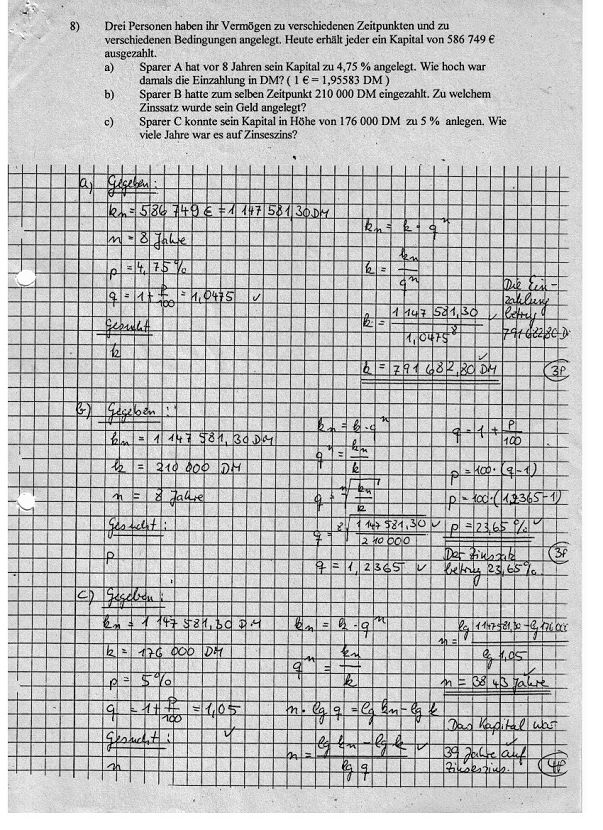 8) Drei Personen haben ihr Vermögen zu verschiedenen Zeitpunkten und zu
verschiedenen Bedingungen angelegt. Heute erhält jeder ein Kapital von 586 749 €
ausgezahlt.
a) Sparer A hat vor 8 Jahren sein Kapital zu 4,75 % angelegt. Wie hoch war
damals die Einzahlung in DM? ( 1 € = 1,95583 DM )
b) Sparer B hatte zum selben Zeitpunkt 210 000 DM eingezahlt. Zu welchem
Zinssatz wurde sein Geld angelegt?
c) Sparer C konnte sein Kapital in Höhe von 176 000 DM zu 5 % anlegen. Wie
viele Jahre war es auf Zinseszins?
a) Gegeben:
kn = 586 749 € = 1 147 581,30 DM
n = 8 Jahre
p = 4,75%
q = 1 + p/100 = 1,0475 ✓
Gesucht
k
kn = k · qⁿ
k = kn/qⁿ
k = 1 147 581,30/1,0475⁸ ✓
k = 791 682,80 DM ✓
Die Ein-
zahlung
betrug
791 682,80 D
3P
b) Gegeben:
kn = 1 147 581,30 DM
k = 210 000 DM
n = 8 Jahre
Gesucht:
p
kn = k · qⁿ
qⁿ = kn/k
q = ⁿ√(kn/k)
q = ⁸√(1 147 581,30/210 000) ✓
q = 1,2365 ✓
q = 1 + p/100
p = 100 · (q-1)
p = 100 · (1,2365-1)
p = 23,65% ✓
Der Zinssatz
betrug 23,65%.
3P
c) Gegeben:
kn = 1 147 581,30 DM
k = 176 000 DM
p = 5%
q = 1 + p/100 = 1,05
✓
Gesucht:
n
kn = k · qⁿ
qⁿ = kn/k
n · lg q = lg kn - lg k
n = (lg kn - lg k)/lg q ✓
n = (lg 1147581,30 - lg 176 000)/lg 1,05
n = 38,43 Jahre ✓
Das Kapital war
39 Jahre auf ✓
Zinseszins.
4P